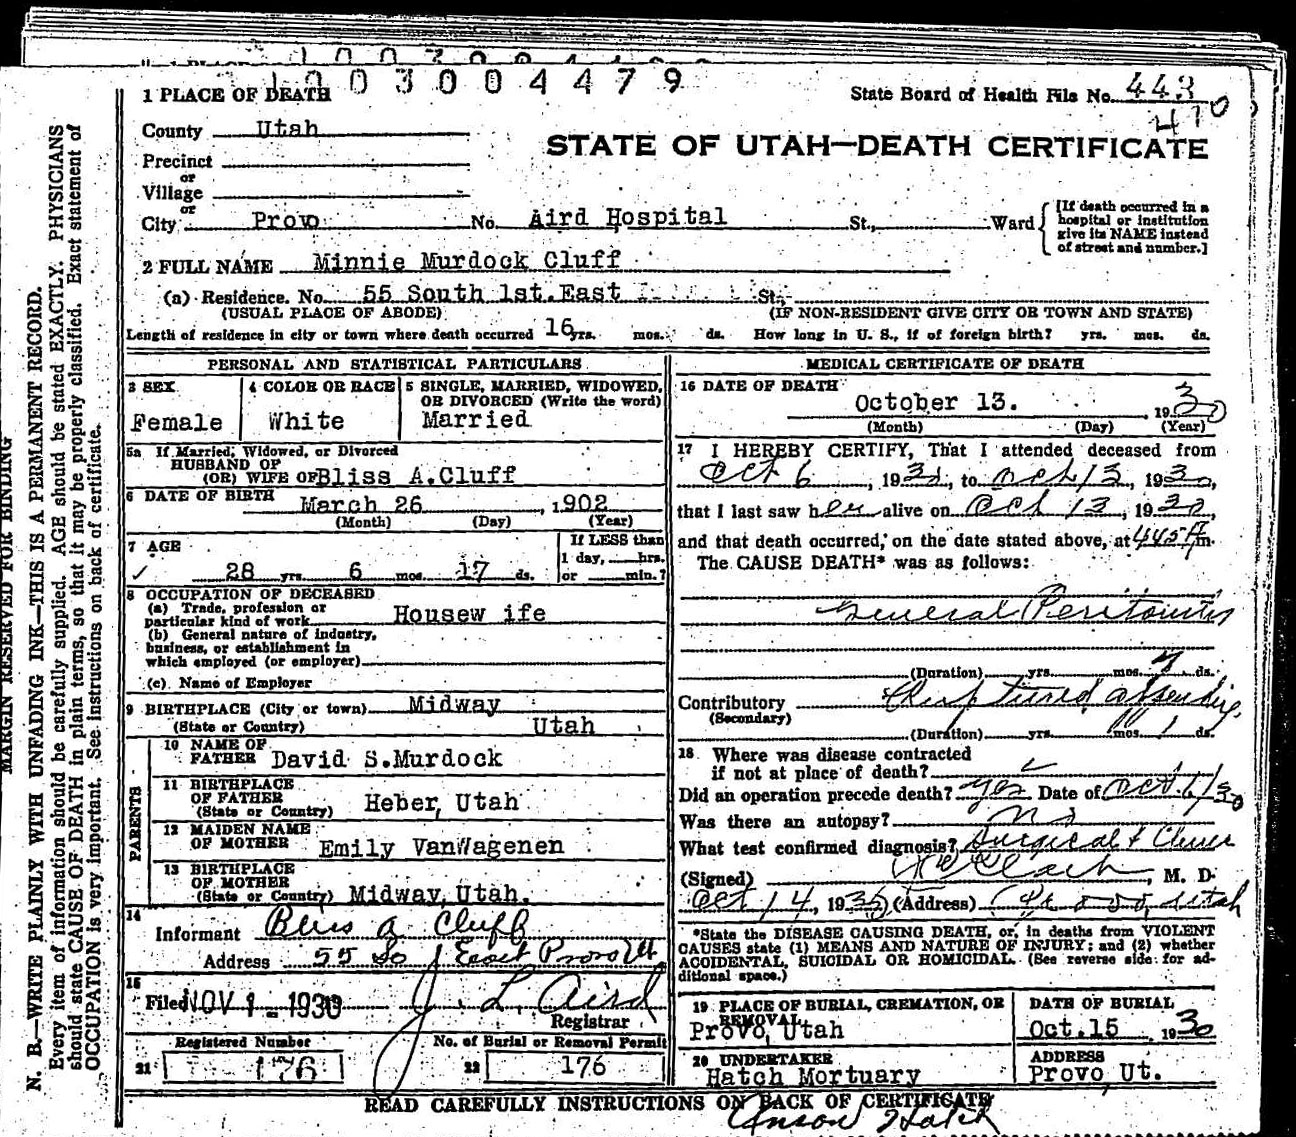 1003004479
1 PLACE OF DEATH
State Board of Health File No. 443
470
County Utah
STATE OF UTAH—DEATH CERTIFICATE
Precinct
or
Village
or
City Provo No. Aird Hospital St., Ward
[If death occurred in a
hospital or institution
give its NAME instead
of street and number.]
2 FULL NAME Minnie Murdock Cluff
(a) Residence. No. 55 South 1st. East St.
(USUAL PLACE OF ABODE) (IF NON-RESIDENT GIVE CITY OR TOWN AND STATE)
Length of residence in city or town where death occurred 16 yrs. mos. ds. How long in U. S., if of foreign birth? yrs. mos. ds.
PERSONAL AND STATISTICAL PARTICULARS
3 SEX
Female
4 COLOR OR RACE
White
5 SINGLE, MARRIED, WIDOWED,
OR DIVORCED (Write the word)
Married
5a If Married, Widowed, or Divorced
HUSBAND OF
(OR) WIFE OF Bliss A.Cluff
6 DATE OF BIRTH March 26 , 1902
(Month) (Day) (Year)
7 AGE
28 yrs. 6 mos. 17 ds.
If LESS than
1 day, hrs.
or min.?
8 OCCUPATION OF DECEASED
(a) Trade, profession or
particular kind of work Housew ife
(b) General nature of industry,
business, or establishment in
which employed (or employer)
(c) Name of Employer
9 BIRTHPLACE (City or town) Midway
(State or Country) Utah
PARENTS
10 NAME OF
FATHER David S.Murdock
11 BIRTHPLACE
OF FATHER
(State or Country) Heber, Utah
12 MAIDEN NAME
OF MOTHER Emily VanWagenen
13 BIRTHPLACE
OF MOTHER
(State or Country) Midway, Utah.
14
Informant Bliss A Cluff
Address 55 So 1 East Provo Ut.
15
Filed NOV 1 - 1930 J. L. Aird
Registrar
Registered Number No. of Burial or Removal Permit
21 176 22 176
MEDICAL CERTIFICATE OF DEATH
16 DATE OF DEATH
October 13. , 1930
(Month) (Day) (Year)
17 I HEREBY CERTIFY, That I attended deceased from
Oct 6, 1930, to Oct 13, 1930,
that I last saw her alive on Oct 13, 1930,
and that death occurred, on the date stated above, at 445 m.
The CAUSE DEATH* was as follows:
General Peritonitis
(Duration) yrs. mos. 7 ds.
Contributory Ruptured appendix
(Secondary)
(Duration) yrs. mos. 1 ds.
18 Where was disease contracted
if not at place of death?
Did an operation precede death? Yes Date of Oct. 6/30
Was there an autopsy? no
What test confirmed diagnosis? Surgical &
(Signed) , M. D.
Oct 14, 1930 (Address) Provo, Utah
*State the DISEASE CAUSING DEATH, or, in deaths from VIOLENT
CAUSES state (1) MEANS AND NATURE OF INJURY; and (2) whether
ACCIDENTAL, SUICIDAL OR HOMICIDAL. (See reverse side for ad-
ditional space.)
19 PLACE OF BURIAL, CREMATION, OR
REMOVAL
Provo, Utah
DATE OF BURIAL
Oct.15 1930
20 UNDERTAKER
Hatch Mortuary
ADDRESS
Provo Ut.
READ CAREFULLY INSTRUCTIONS ON BACK OF CERTIFICATE
Anson Hatch
MARGIN RESERVED FOR BINDING
N. B.—WRITE PLAINLY WITH UNFADING INK—THIS IS A PERMANENT RECORD.
Every item of information should be carefully supplied. AGE should be stated EXACTLY. PHYSICIANS
should state CAUSE OF DEATH in plain terms, so that it may be properly classified. Exact statement of
OCCUPATION is very important. See instructions on back of certificate.